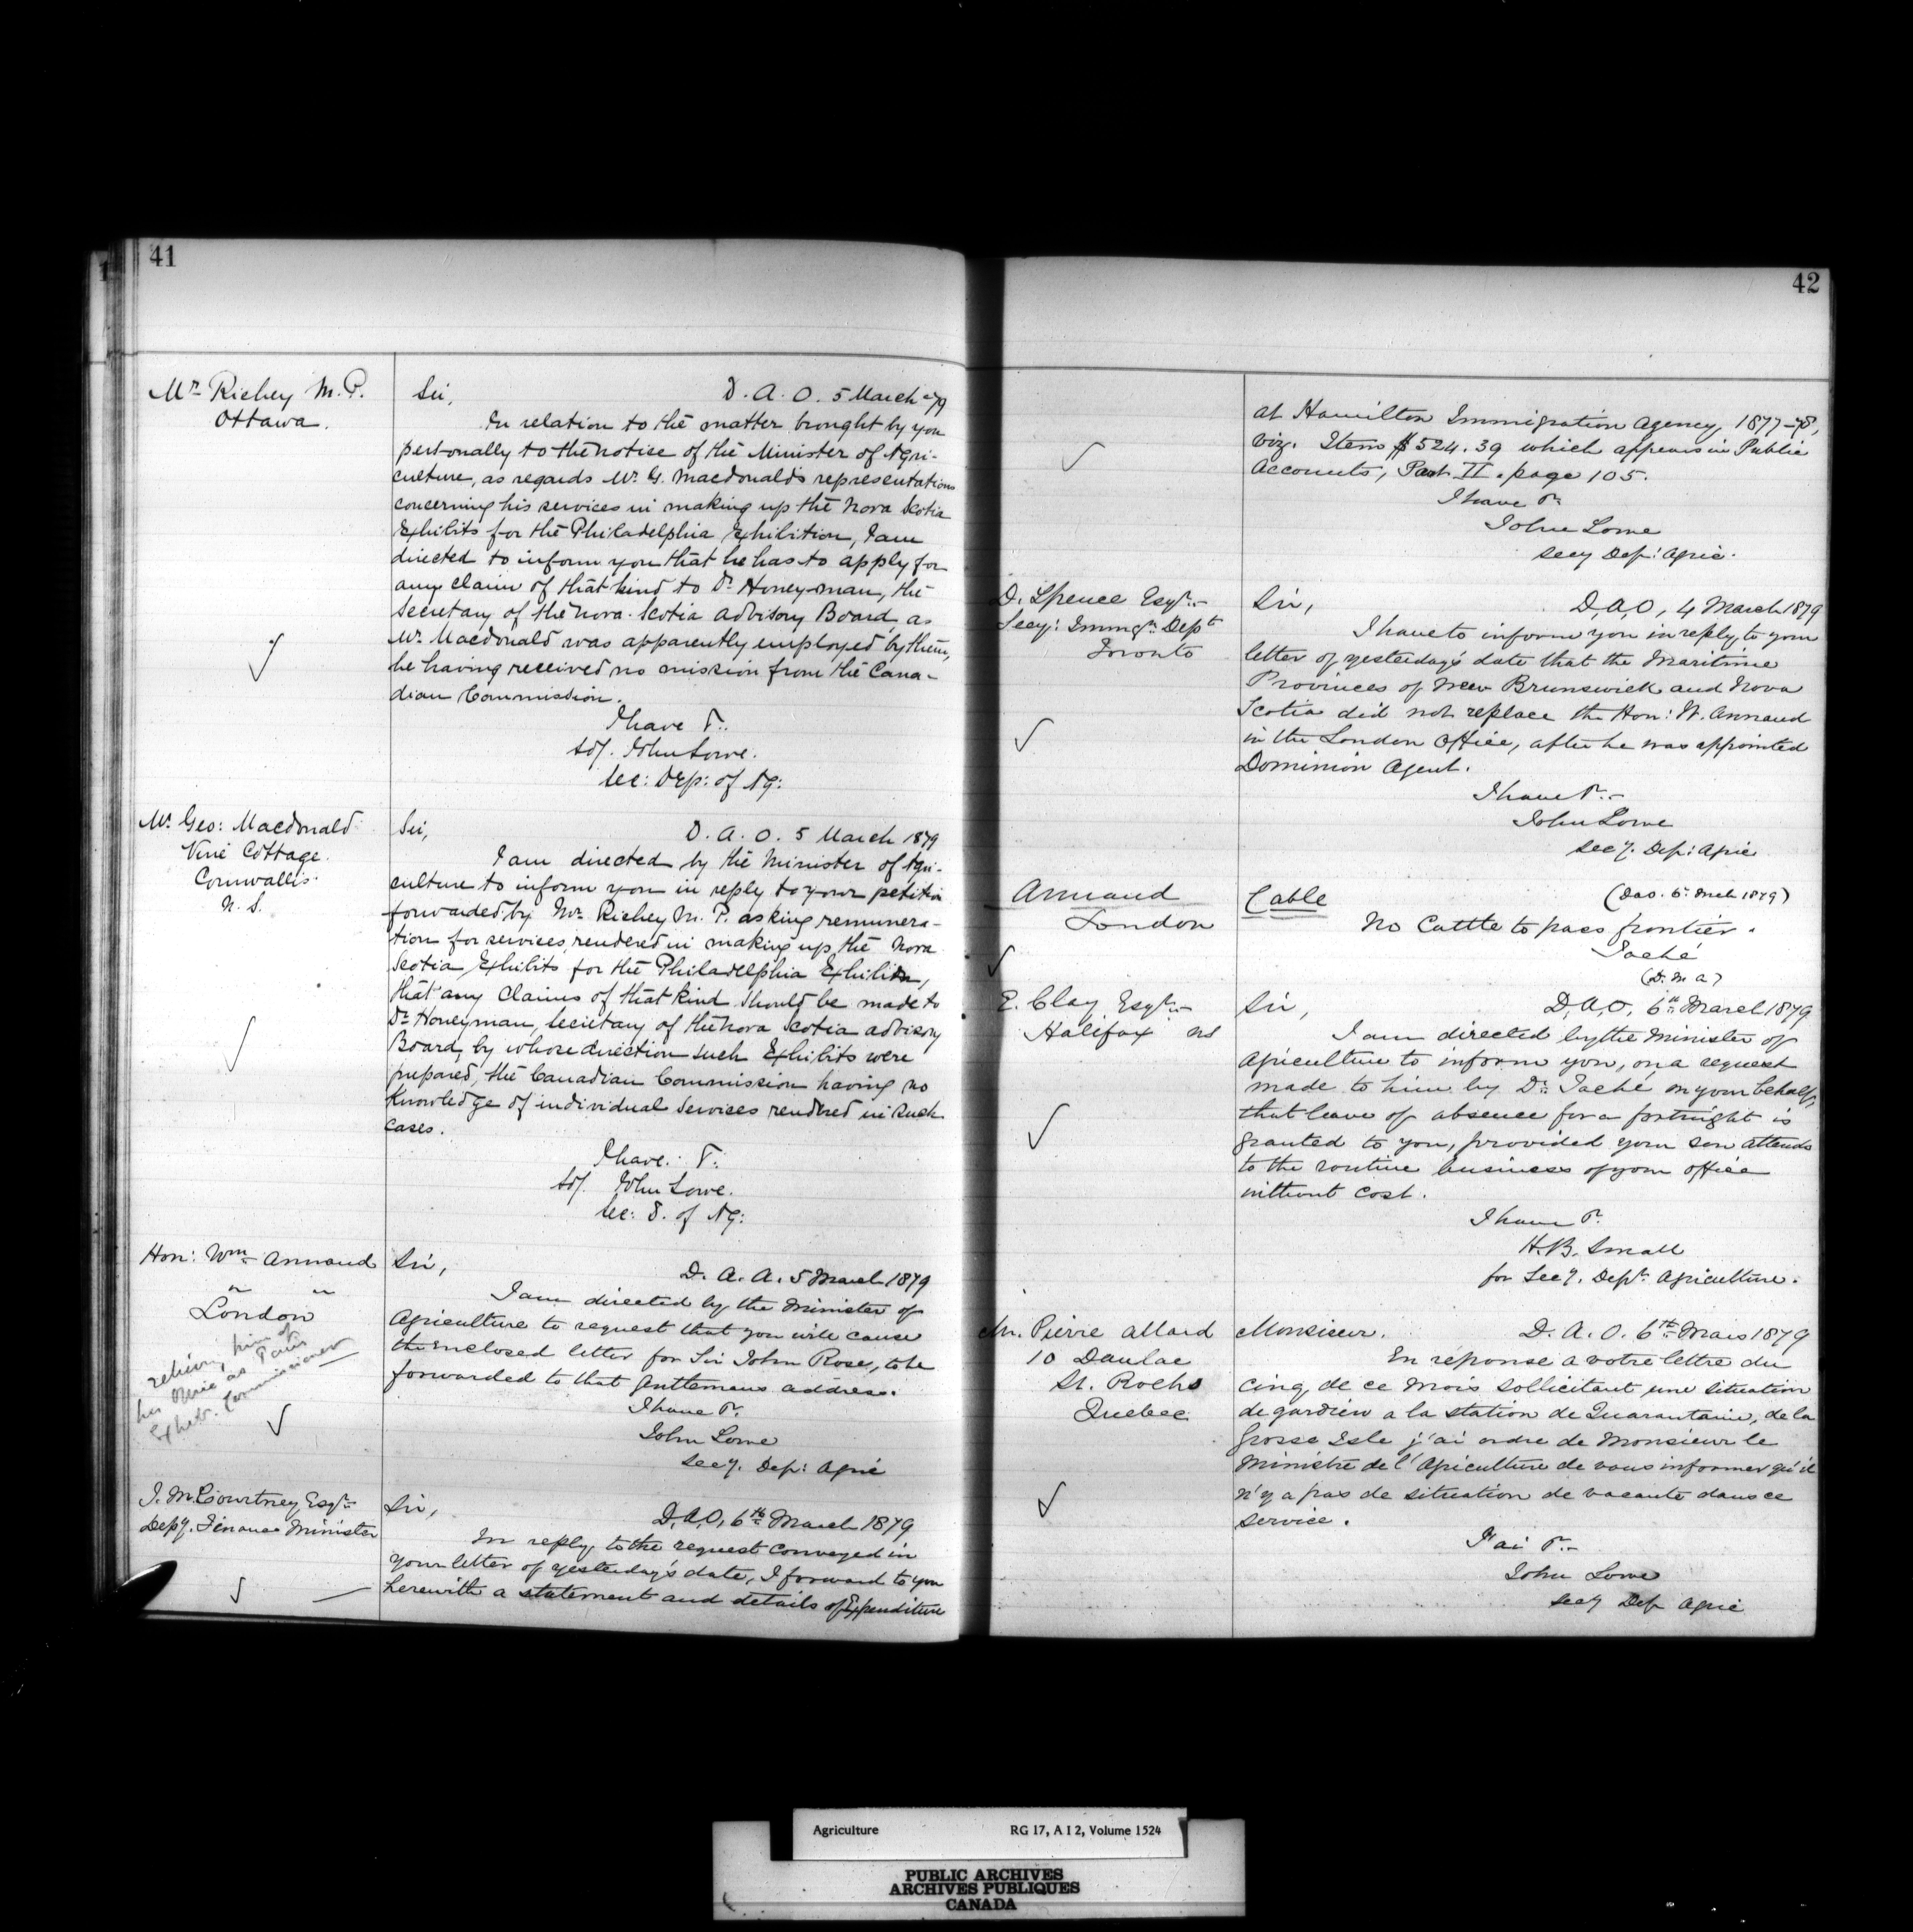 41
Mr Richey M.P.
Ottawa.
Sir,
D. A. O. 5 March 79
In relation to the matter brought by you
personally to the notice of the Minister of Agri-
culture, as regards Mr. G. Macdonald's representations
concerning his services in making up the Nova Scotia
Exhibits for the Philadelphia Exhibition, I am
directed to inform you that he has to apply for
any claim of that kind to Dr Honeyman, the
Secretary of the Nova Scotia Advisory Board, as
Mr. Macdonald was apparently employed by them,
he having received no mission from the Cana-
dian Commission.
I have &.
sd/. John Lowe.
Sec: Dep: of Ag:
Mr. Geo: Macdonald
Vine Cottage.
Cornwallis.
N. S.
Sir,
D. A. O. 5 March 1879
I am directed by the Minister of Agri-
culture to inform you in reply to your petition
forwarded by Mr. Richey M. P. asking remunera-
tion for services rendered in making up the Nova
Scotia Exhibits for the Philadelphia Exhibition,
that any Claims of that kind should be made to
Dr Honeyman, Secretary of the Nova Scotia Advisory
Board, by whose direction such Exhibits were
prepared, the Canadian Commission having no
Knowledge of individual Services rendered in such
cases.
I have. &.
sd/. John Lowe.
Sec: D. of Ag:
Hon: Wm Annand
" "
London
relieving him of
his Office as Paris
Exhib. Commissioner
Sir,
D. A. A. 5 March 1879
I am directed by the Minister of
Agriculture to request that you will cause
the enclosed letter for Sir John Rose, to be
forwarded to that gentlemans address.
I have &.
John Lowe
Secy. Dep: Agric
J. M. Courtney Esqr
Depy. Finance Minister
Sir,
D, A, O, 6th March 1879
In reply to the request conveyed in
your letter of yesterday's date, I forward to you
herewith a statement and details of Expenditure
42
at Hamilton Immigration Agency, 1877-78,
viz. Item $524.39 which appears in Public
Accounts, Part II. page 105.
I have &.
John Lowe
Secy Dep: Agric.
D. Spence Esqr.
Secy: Immgn Dept
Toronto
Sir,
D, A, O, 4 March 1879
I have to inform you in reply to your
letter of yesterday's date that the Maritime
Provinces of New Brunswick and Nova
Scotia did not replace the Hon: W. Annand
in the London Office, after he was appointed
Dominion Agent.
I have &.
John Lowe
Secy. Dep: Agric
Annand
London
Cable
(DAO. 6 Mch 1879)
No Cattle to pass frontier.
Taché
(D. M A)
E. Clay Esqr
Halifax NS
Sir,
D, A, O, 6th March 1879
I am directed by the Minister of
Agriculture to inform you, on a request
made to him by Dr. Taché on your behalf,
that leave of absence for a fortnight is
granted to you, provided your son attends
to the routine business of your office
without cost.
I have &.
H. B. Small
for Secy. Dept. Agriculture.
Mr. Pierre Allard
10 Daulac
St. Rochs
Quebec
Monsieur.
D. A. O. 6th Mars 1879
En réponse a votre lettre du
cinq, de ce mois sollicitant une situation
de gardien a la station de Quarantaine, de la
Grosse Isle j'ai ordre de Monsieur le
Ministre de l'Agriculture de vous informer qu'il
n'y a pas de situation de vacante dans ce
service.
J'ai &.
John Lowe
Secy Dep Agric
Agriculture
RG 17, A I 2, Volume 1524
PUBLIC ARCHIVES
ARCHIVES PUBLIQUES
CANADA